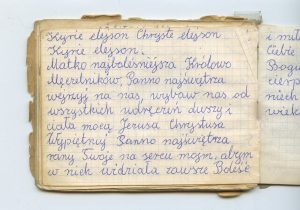 Kyrie elejson Chryste elejson
Kyrie elejson.
Matko najboleśniejsza Królowo
Męczelników, Panno najświętrza
wejżyj na nas, wybaw nas od
wszystkich udręczeń duszy i
ciała mocą Jezusa Chrystusa
Wypiętnuj Panno najświętrza
rany Twoje na sercu mojm, abym
w nich widziała zawsze Boleść
i miłoś
cierpie
Bogu
cierpie
niech
wiek